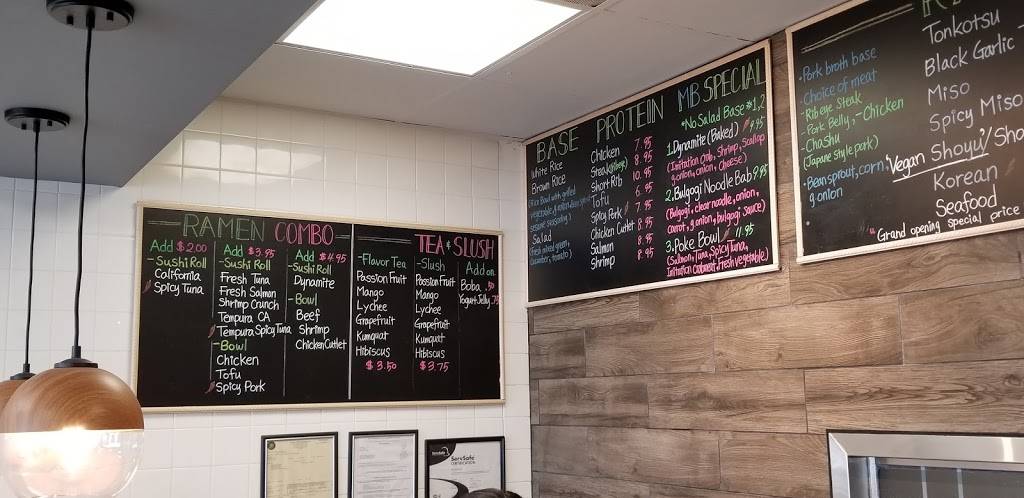 RAMEN COMBO
Add $2.00
-Sushi Roll
California
Spicy Tuna
Add $3.95
-Sushi Roll
Fresh Tuna
Fresh Salmon
Shrimp Crunch
Tempura CA
Tempura Spicy Tuna
-Bowl
Chicken
Tofu
Spicy Pork
Add $4.95
-Sushi Roll
Dynamite
-Bowl
Beef
Shrimp
Chicken Cutlet
TEA & SLUSH
-Flavor Tea
Passion Fruit
Mango
Lychee
Grapefruit
Kumquat
Hibiscus
$3.50
-Slush
Passion Fruit
Mango
Lychee
Grapefruit
Kumquat
Hibiscus
$3.75
Add on
Boba .50
Yogurt Jelly .75
ServSafe
CERTIFICATION
BASE
White Rice
Brown Rice
(Rice Bowl with grilled
Salad
(Fresh mixed green,
cucumber, tomato)
PROTEIN
Chicken 7.95
Steak 8.95
Short Rib 10.95
Tofu 6.95
Spicy Pork 7.95
Chicken Cutlet 8.95
Salmon 8.95
Shrimp 8.95
MB SPECIAL
*No Salad Base #1,2
1.Dynamite (Baked) 9.95
(Imitation crab, Shrimp, Scallop
onion, onion, cheese)
2.Bulgogi Noodle Bab 9.95
(Bulgogi, clear noodle, onion,
carrot, g.onion, bulgogi sauce)
3.Poke Bowl 11.95
(Salmon, Tuna, Spicy Tuna,
Imitation crabmeat, Fresh vegetable)
·Pork broth base
·Choice of meat
-Rib eye Steak
-Pork Belly, -Chicken
-Chashu
(Japane style pork)
·Bean sprout, corn,
g.onion
Tonkotsu
Black Garlic
Miso
Spicy Miso
"Vegan Shoyu"/
Korean
Seafood
"Grand opening special price